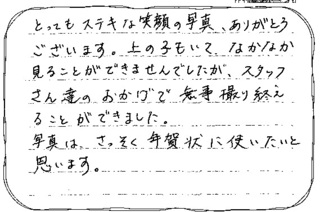 とってもステキな笑顔の写真、ありがとう
ございます。上の子もいて、なかなか
見ることができませんでしたが、スタッフ
さん達のおかげで無事撮り終え
ることができました。
写真は、さっそく年賀状に使いたいと
思います。